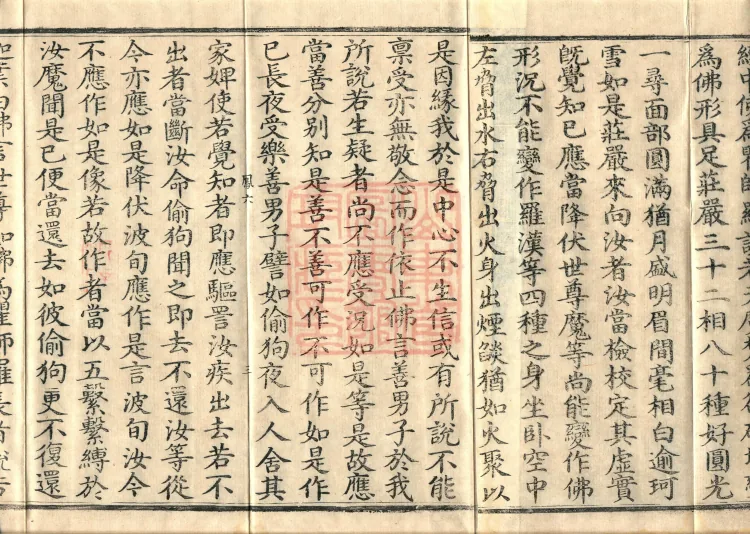 爲佛形具足莊嚴三十二相八十種好圓光
一尋面部圓滿猶月盛明眉間毫相白逾珂
雪如是莊嚴來向汝者汝當檢校定其虛實
旣覺知已應當降伏世尊魔等尚能變作佛
形況不能變作羅漢等四種之身坐臥空中
左脅出水右脅出火身出煙燄猶如火聚以
是因緣我於是中心不生信或有所說不能
稟受亦無敬念而作依止佛言善男子於我
所說若生疑者尚不應受況如是等是故應
當善分別知是善不善可作不可作如是作
已長夜受樂善男子譬如偷狗夜入人舍其
鳳六 三
家婢使若覺知者即應驅詈汝疾出去若不
出者當斷汝命偷狗聞之即去不還汝等從
今亦應如是降伏波旬應作是言波旬汝今
不應作如是像若故作者當以五繫繫縛於
汝魔聞是已便當還去如彼偷狗更不復還